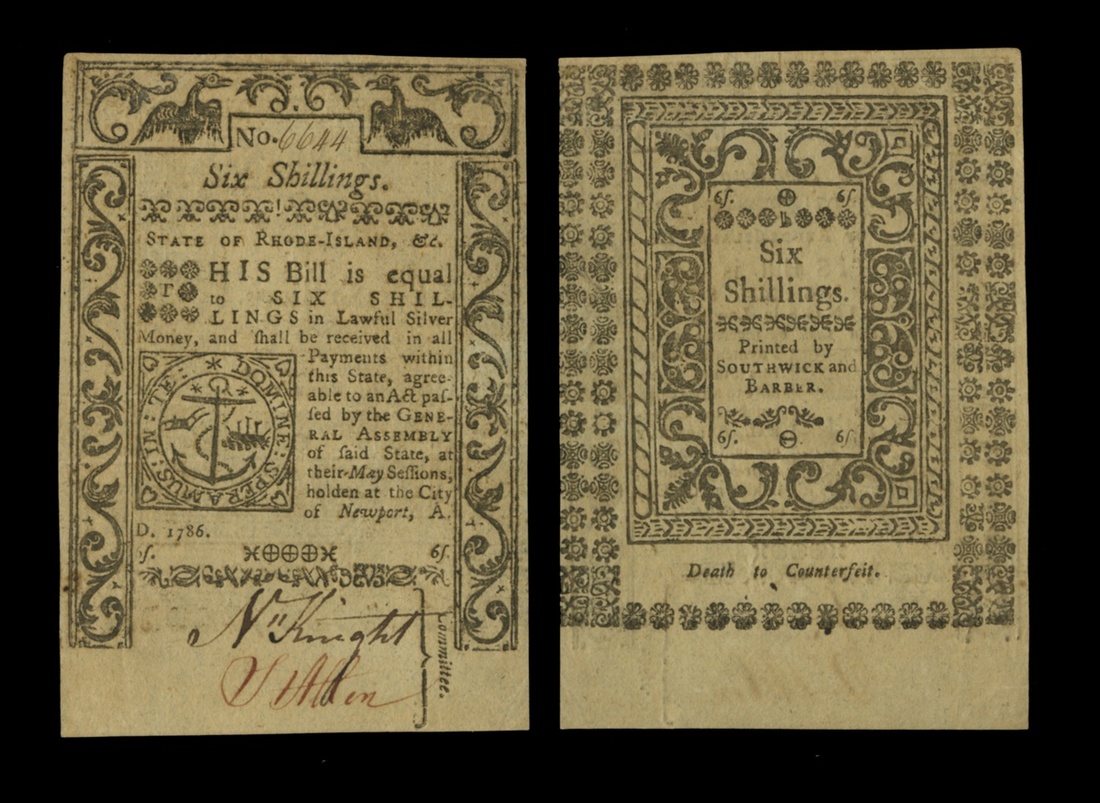 No. 6644
Six Shillings.
STATE OF RHODE-ISLAND, &c.
THIS Bill is equal
to SIX SHIL-
LINGS in Lawful Silver
Money, and ſhall be received in all
Payments within
this State, agree-
able to an Act paſ-
ſed by the GENE-
RAL ASSEMBLY
of ſaid State, at
their May Seſſions,
holden at the City
of Newport, A.
D. 1786.
IN : TE : DOMINE : SPERAMUS :
ſ. 6ſ.
Nn Knight
Committee.
6ſ. 6ſ.
Six
Shillings.
Printed by
SOUTHWICK and
BARBER.
6ſ. 6ſ.
Death to Counterfeit.